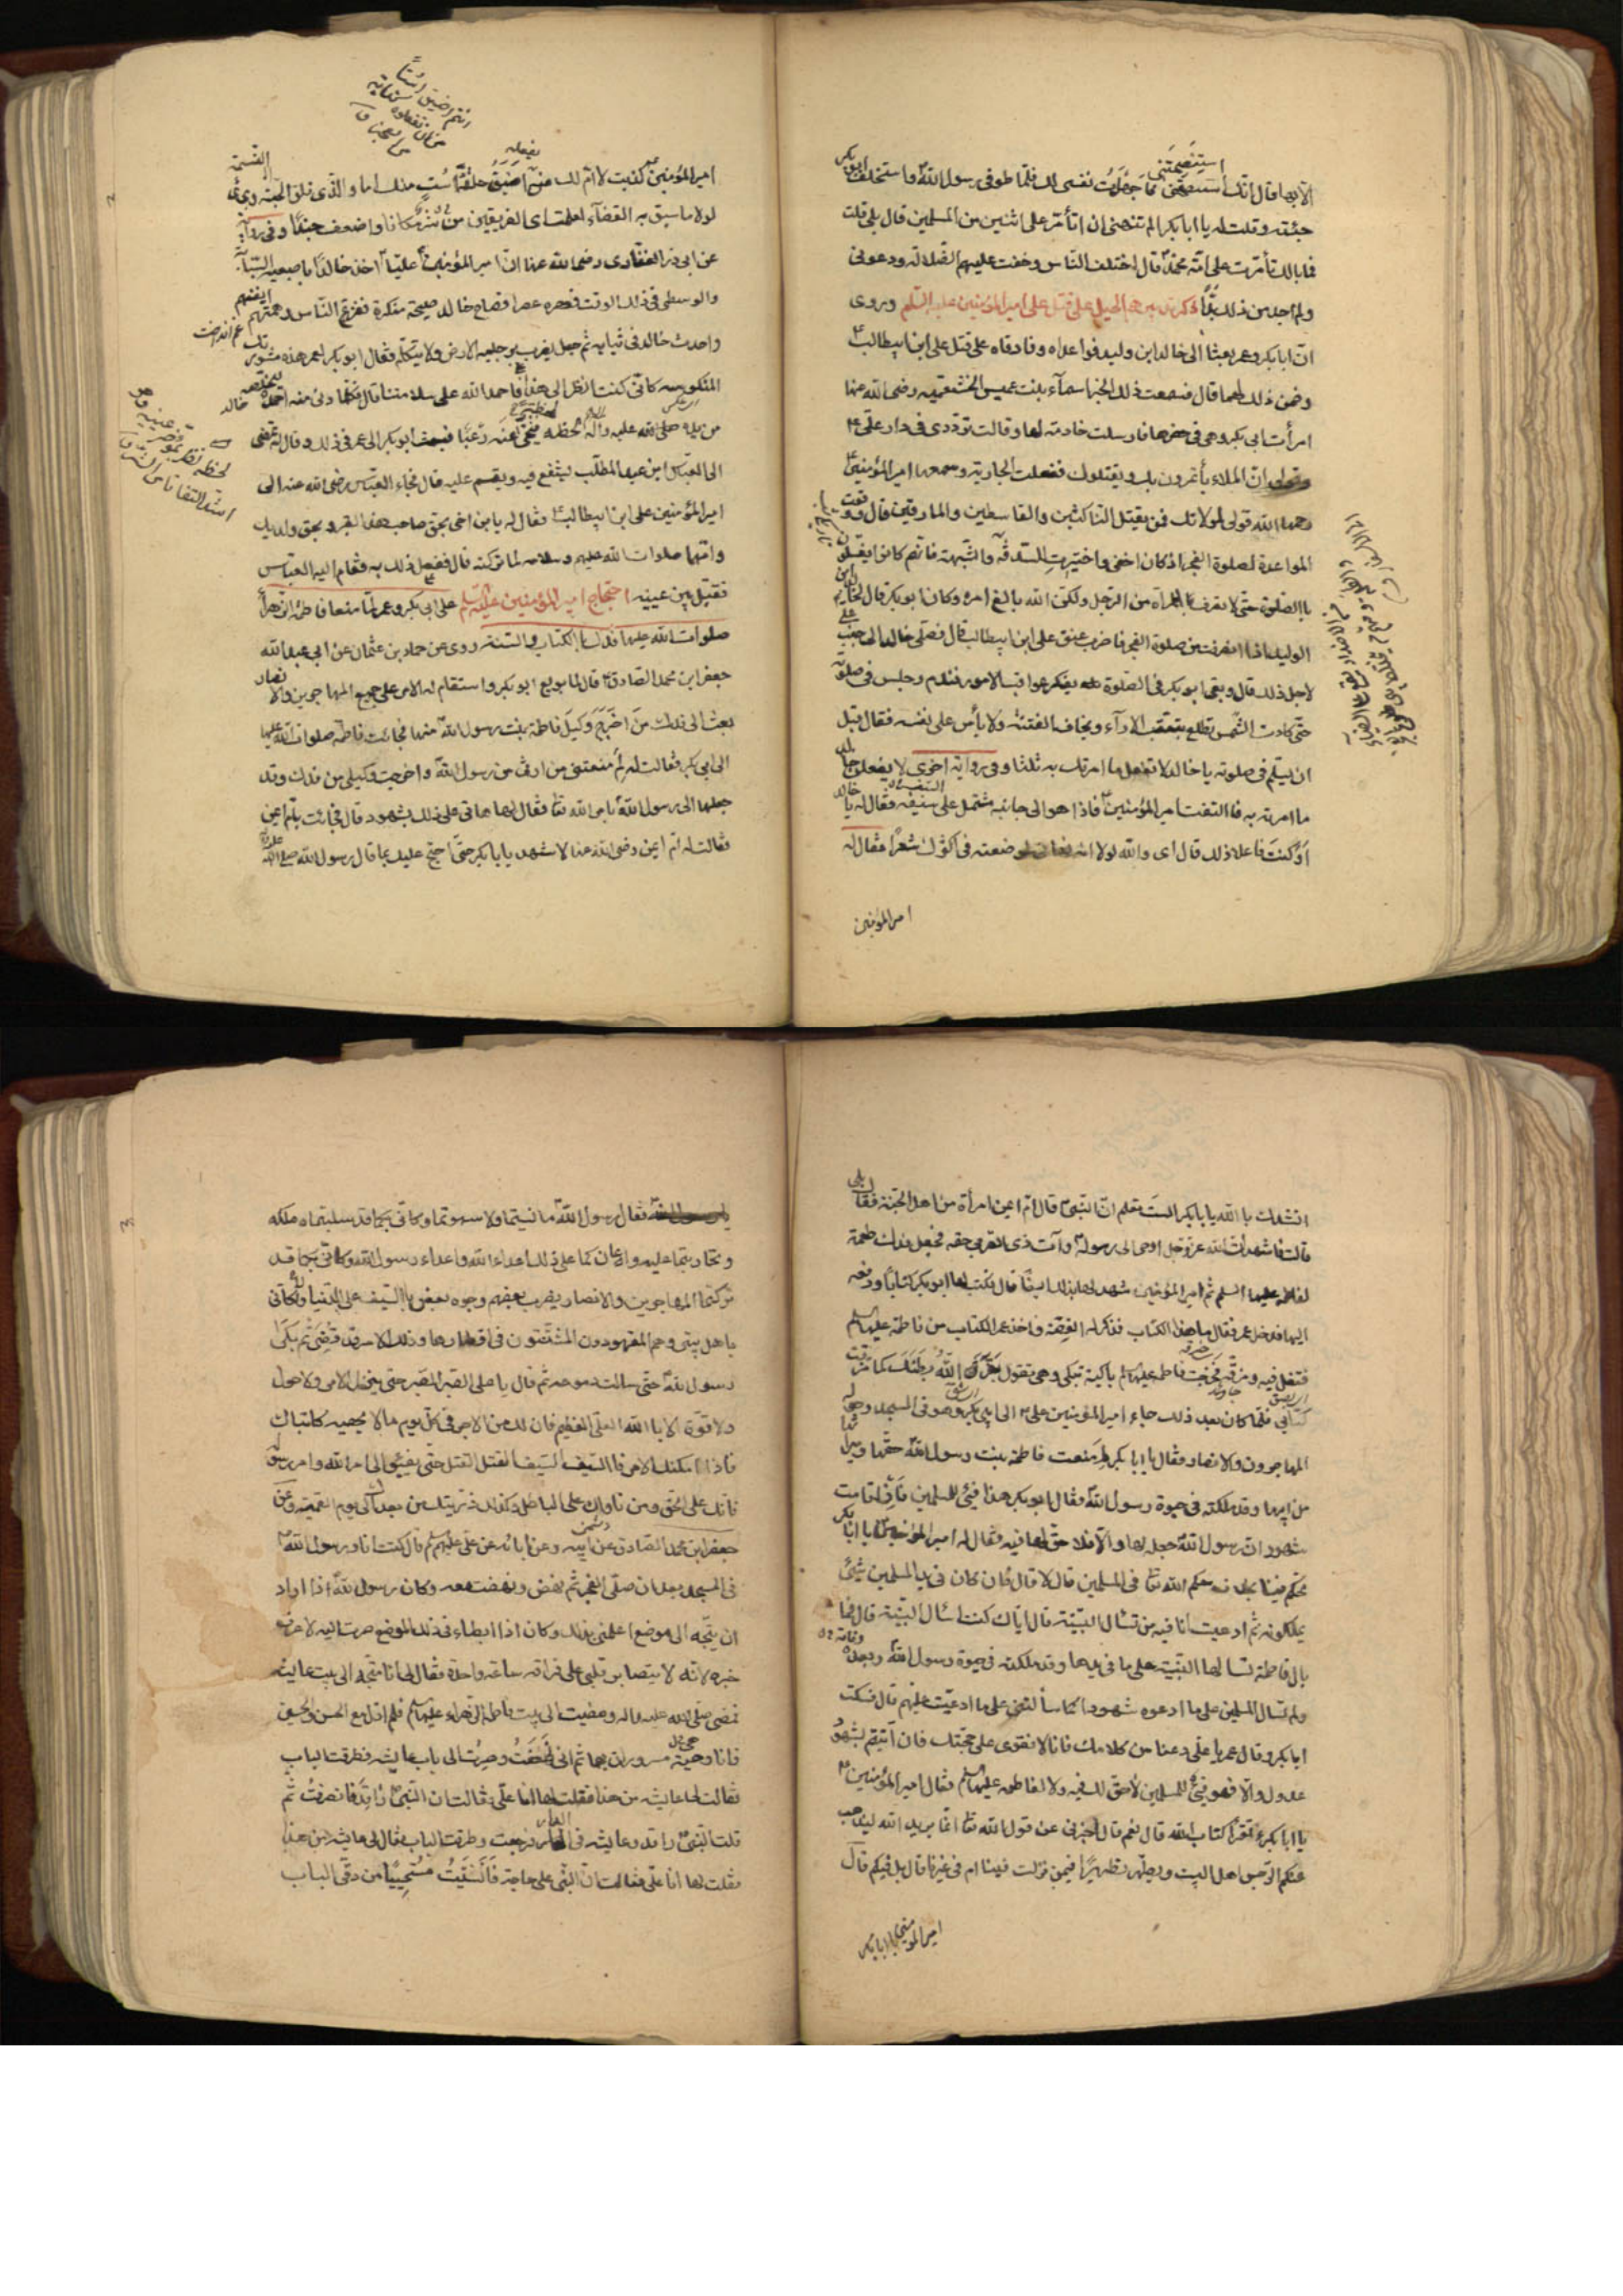 الابها قال انك استنصحتنى فما جهلت نفسى لك فلما توفى رسول الله واستخلف ابو بكر
جئته وقلت له يا ابا بكر الم تنهنى ان اتأمر على اثنين من المسلمين قال بلى قلت
فما بالك تأمرت على امة محمد قال اختلف الناس وخفت عليهم الضلالة ودعونى
ولم اجد من ذلك بدًّا ذكر تدبيرهم الحيل على قتل على امير المؤمنين عليه السلم وروى
ان ابا بكر وعمر بعثا الى خالد ابن وليد فواعداه وفارقاه على قتل على ابن ابيطالب
وضمن ذلك لهما قال فسمعت ذلك الخبر اسمآء بنت عميس الخثعميه رضى الله عنها
امرأت ابى بكر وهى فى خدرها فارسلت خادمة لها وقالت تردّدى فى دار على
وقولى ان الملاء يأتمرون بك ليقتلوك ففعلت الجارية وسمعها امير المؤمنين
رحمها الله قولى لمولاتك فمن يقتل الناكثين والقاسطين والمارقين قال ووقعت
المواعدة لصلوة الفجر اذ كان اخفى واختيرت للسدفة والشبهة فانهم كانوا يغلسون
بالصلوة حتى لا تعرف المرأة من الرجل ولكن الله بالغ امره وكان ابو بكر قال لخالد ابن
الوليد اذا انصرفت من صلوة الفجر فاضرب عنق على ابن ابيطالب قال فصلى خالد الى جنب على
لاجل ذلك قال وبقى ابو بكر فى الصلوة يفكر عواقب الامور فندم وجلس فى صلوته
حتى كادت الشمس تطلع يتعقب الارآء ويخاف الفتنه ولا يأمن على نفسه فقال قبل
ان يسلم فى صلوته يا خالد لا تفعل ما امرتك به ثلثا وفى رواية اخرى لا يفعلن خالد
ما امرته به فالتفت امير المؤمنين فاذا هو الى جانبه مشتمل على سيفه فقال له يا خالد
أو كنت فاعلا ذلك قال اى والله لولا انه نهانى لوضعته فى اكثرك شعرًا فقال له
امير المؤمنين
امير المؤمنين كذبت لا ام لك من يفعله اضيق حلقة است منك اما والذى فلق الحبة وبرئ النسمة
لولا ما سبق به القضآء لعلمت اى الفريقين شر مكانا واضعف جندًا وفى رواية
عن ابى ذر الغفارى رضى الله عنه ان امير المؤمنين عليًا اخذ خالدًا باصبعيه السبابة
والوسطى فى ذلك الوقت فعصره عصرا فصاح خالد صيحة منكرة ففزع الناس وهمتهم انفسهم
واحدث خالد فى ثيابه ثم جعل يضرب برجليه الارض ولا يتكلم فقال ابو بكر لعمر هذه مشورتك
المنكوسه كانى كنت انظر الى هذا فاحمد الله على سلامتنا قال فكلما دنى منه احد ليخلصه
من يده لحظه تنحى عنه رعبًا فبعث ابو بكر الى عمر فى ذلك وقال له تمضى
الى العباس ابن عبد المطلب ليشفع فيه ويقسم عليه قال فجاء العباس رضى الله عنه الى
امير المؤمنين على ابن ابيطالب فقال له يا بن اخى بحق صاحب هذا القبر وبحق ولديك
وامهما صلوات الله عليهم وسلامه لما تركته قال ففعل ذلك به فقام اليه العباس
فقبل بين عينيه احتجاج امير المؤمنين عليه السلم على ابى بكر وعمر لما منعا فاطمة الزهرآ
صلوات الله عليها فدك بالكتاب والسنة روى عن حماد بن عثمان عن ابى عبد الله
جعفر ابن محمد الصادق قال لما بويع ابو بكر واستقام له الامر على جميع المهاجرين والانصار
بعث الى فدك من اخرج وكيل فاطمة بنت رسول الله منها فجائت فاطمة صلوات الله عليها
الى ابى بكر فقالت له لم تمنعنى من ارثى من رسول الله واخرجت وكيلى من فدك وقد
جعلها الى رسول الله بامر الله تعا فقال لها هاتى على ذلك بشهود قال فجائت بام ايمن
فقالت له ام ايمن رضى الله عنها لا شهد يا با بكر حتى احتج عليك بما قال رسول الله
انشدك بالله يا با بكر الست تعلم ان النبى قال ام ايمن امرأة من اهل الجنة فقال بلى
قالت فاشهد ان الله عز وجل اوحى الى رسوله وآت ذى القربى حقه فجعل فدك طعمة
لفاطمه عليها السلم ثم امير المؤمنين شهد لها بذلك ايضًا قال فكتب لها ابو بكر كتابًا ودفعه
اليها فدخل عمر فقال ما هذا الكتاب فذكر له القصة فاخذ عمر الكتاب من فاطمة عليها السلم
فتفل فيه ومزقه فخرجت فاطمه عليها السلم باكية تبكى وهى تقول بقر الله بطنك كما بقرت
كتابى فلما كان بعد ذلك جاء امير المؤمنين على الى ابى بكر وهو فى المسجد وحوله
المهاجرون والانصار فقال يا ابا بكر لم منعت فاطمة بنت رسول الله حقها وميراثها
من ابيها وقد ملكته فى حيوة رسول الله فقال ابو بكر هذا فيئ للمسلمين فان اقامت
شهود ان رسول الله جعله لها والا فلا حق لها فيه فقال له امير المؤمنين يا ابا بكر
تحكم فينا بخلاف حكم الله تعا فى المسلمين قال لا قال فان كان فى يد المسلمين شيئ
يملكونه ثم ادعيت انا فيه من تسال البينة قال اياك كنت اسال البينة قال فما
بال فاطمة تسالها البينة على ما فى يدها وقد ملكته فى حيوة رسول الله وبعده
ولم تسال المسلمين على ما ادعوه شهودا كما سألتنى على ما ادعيت عليهم قال فسكت
ابا بكر وقال عمر يا على دعنا من كلامك فانا لا نقوى على حجتك فان اتيتم بشهود
عدول والا فهو فيئ للمسلمين لا حق لك فيه ولا لفاطمه عليها السلم فقال امير المؤمنين
يا ابا بكر اتقرا كتاب الله قال نعم قال اخبرنى عن قول الله تعا انما يريد الله ليذهب
عنكم الرجس اهل البيت ويطهركم تطهيرًا فيمن نزلت فينا ام فى غيرنا قال بل فيكم قال
امير المؤمنين يا ابا بكر
فقال رسول الله ما نسيتما ولا سهوتما وكانى بكما قد سلبتماه ملكه
وتحاربتما عليه واعانكما على ذلك اعداء الله واعداء رسول الله وكانى بكما قد
تركتما المهاجرين والانصار يضرب بعضهم وجوه بعض بالسيف على الدنيا ولكانى
باهل بيتى وهم المقهورون المشتتون فى اقطارها وذلك لامر قد قضى ثم بكى
رسول الله حتى سالت دموعه ثم قال يا على الصبر الصبر حتى ينزل الامر ولا حول
ولا قوة الا بالله العلى العظيم فان لك من الاجر فى كل يوم ما لا يحصيه كاتباك
فاذا امكنك الامر فالسيف السيف القتل القتل حتى يفيئوا الى امر الله وامر رسوله
فانك على الحق ومن ناواك على الباطل وكذلك ذريتك من بعدك الى يوم القيمة وعن
جعفر ابن محمد الصادق عن ابيه وعن ابائه عن على عليهم السلم قال كنت انا ورسول الله
فى المسجد بعد ان صلى الفجر ثم نهض ونهضت معه وكان رسول الله اذا اراد
ان يتجه الى موضع اعلمنى بذلك وكان اذا ابطاء فى ذلك الموضع صرت اليه لاعرف
خبره لانه لا يتصابر قلبى على فراقه ساعة واحدة فقال لى انا متجه الى بيت عايشه
فمضى صلى الله عليه واله ومضيت الى بيت فاطمه الزهراء عليها السلم فلم ازل مع الحسن والحسين
فانا وهى مسروران بهما ثم انى نهضت وصرت الى باب عايشه فطرقت الباب
فقالت لى عايشه من هذا فقلت لها انا على فقالت ان النبى راقد فانصرفت ثم
قلت النبى راقد وعايشه فى الدار فرجعت وطرقت الباب فقال لى عايشه من هذا
فقلت لها انا على فقالت ان النبى على حاجة فانثنيت مستحييًا من دقى الباب